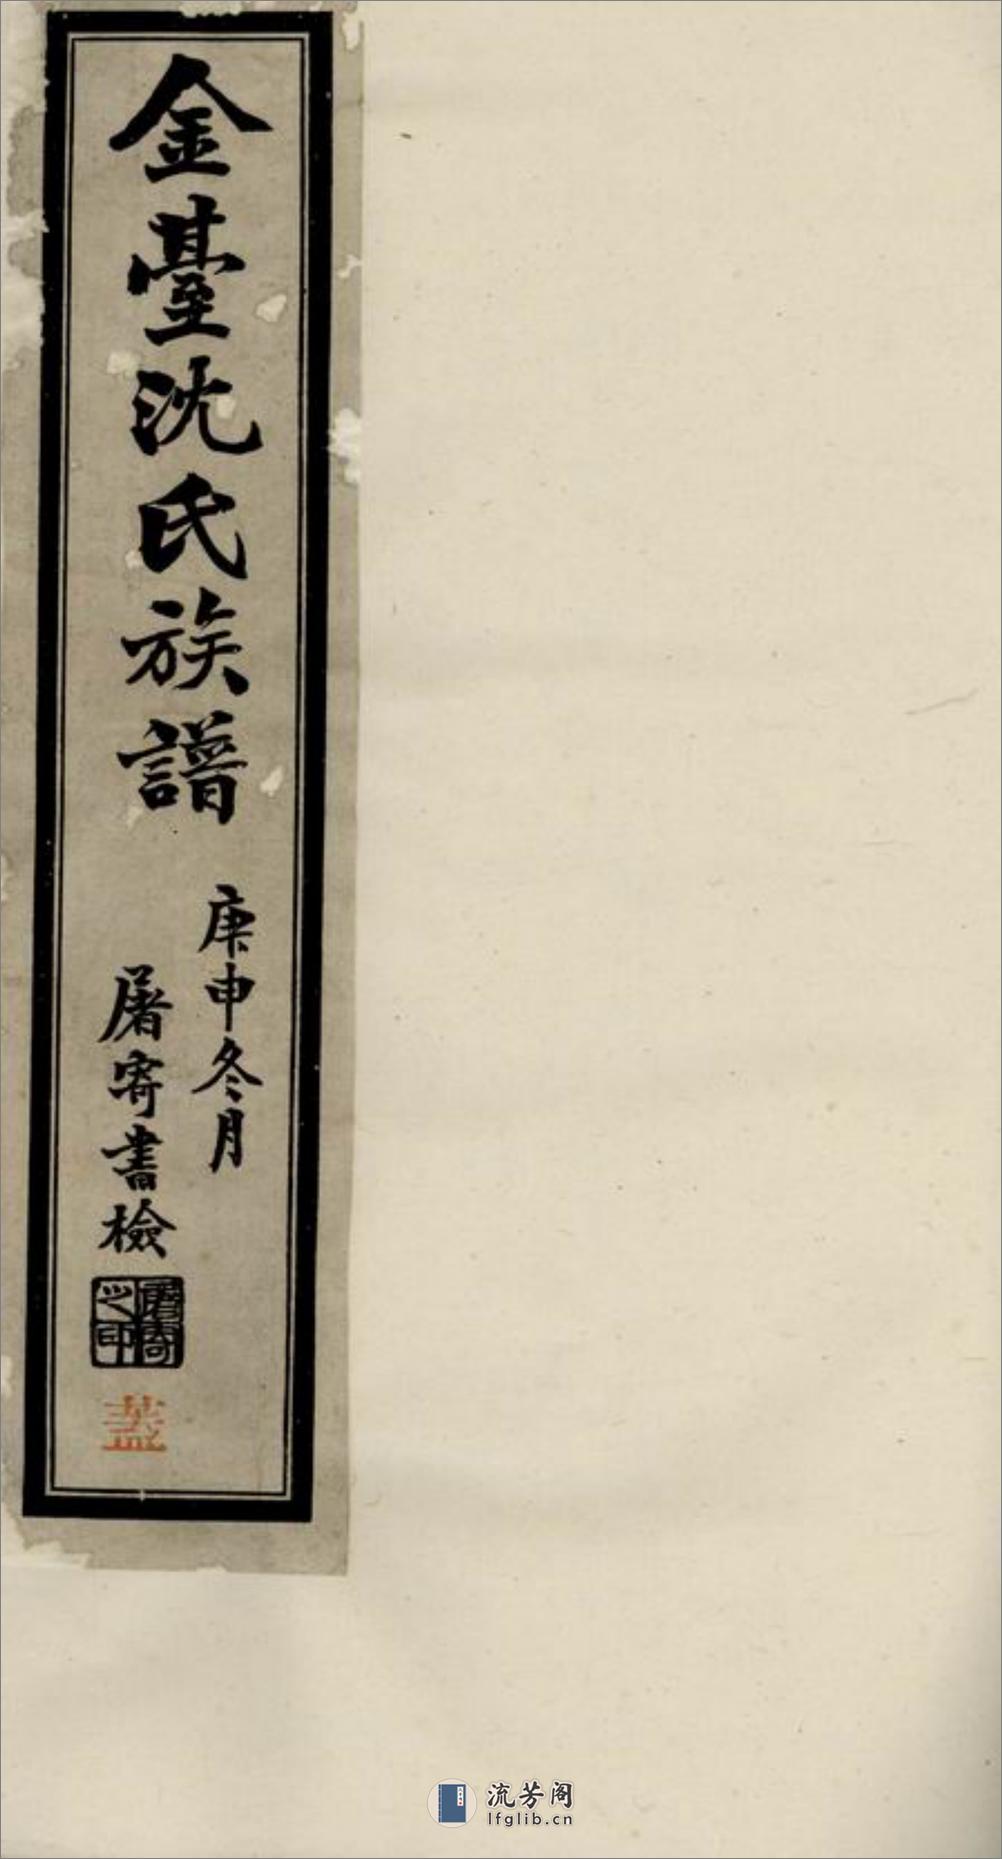 金臺沈氏族譜
庚申冬月
屠寄書檢
屠寄之印
盖
流芳阁
lfglib.cn